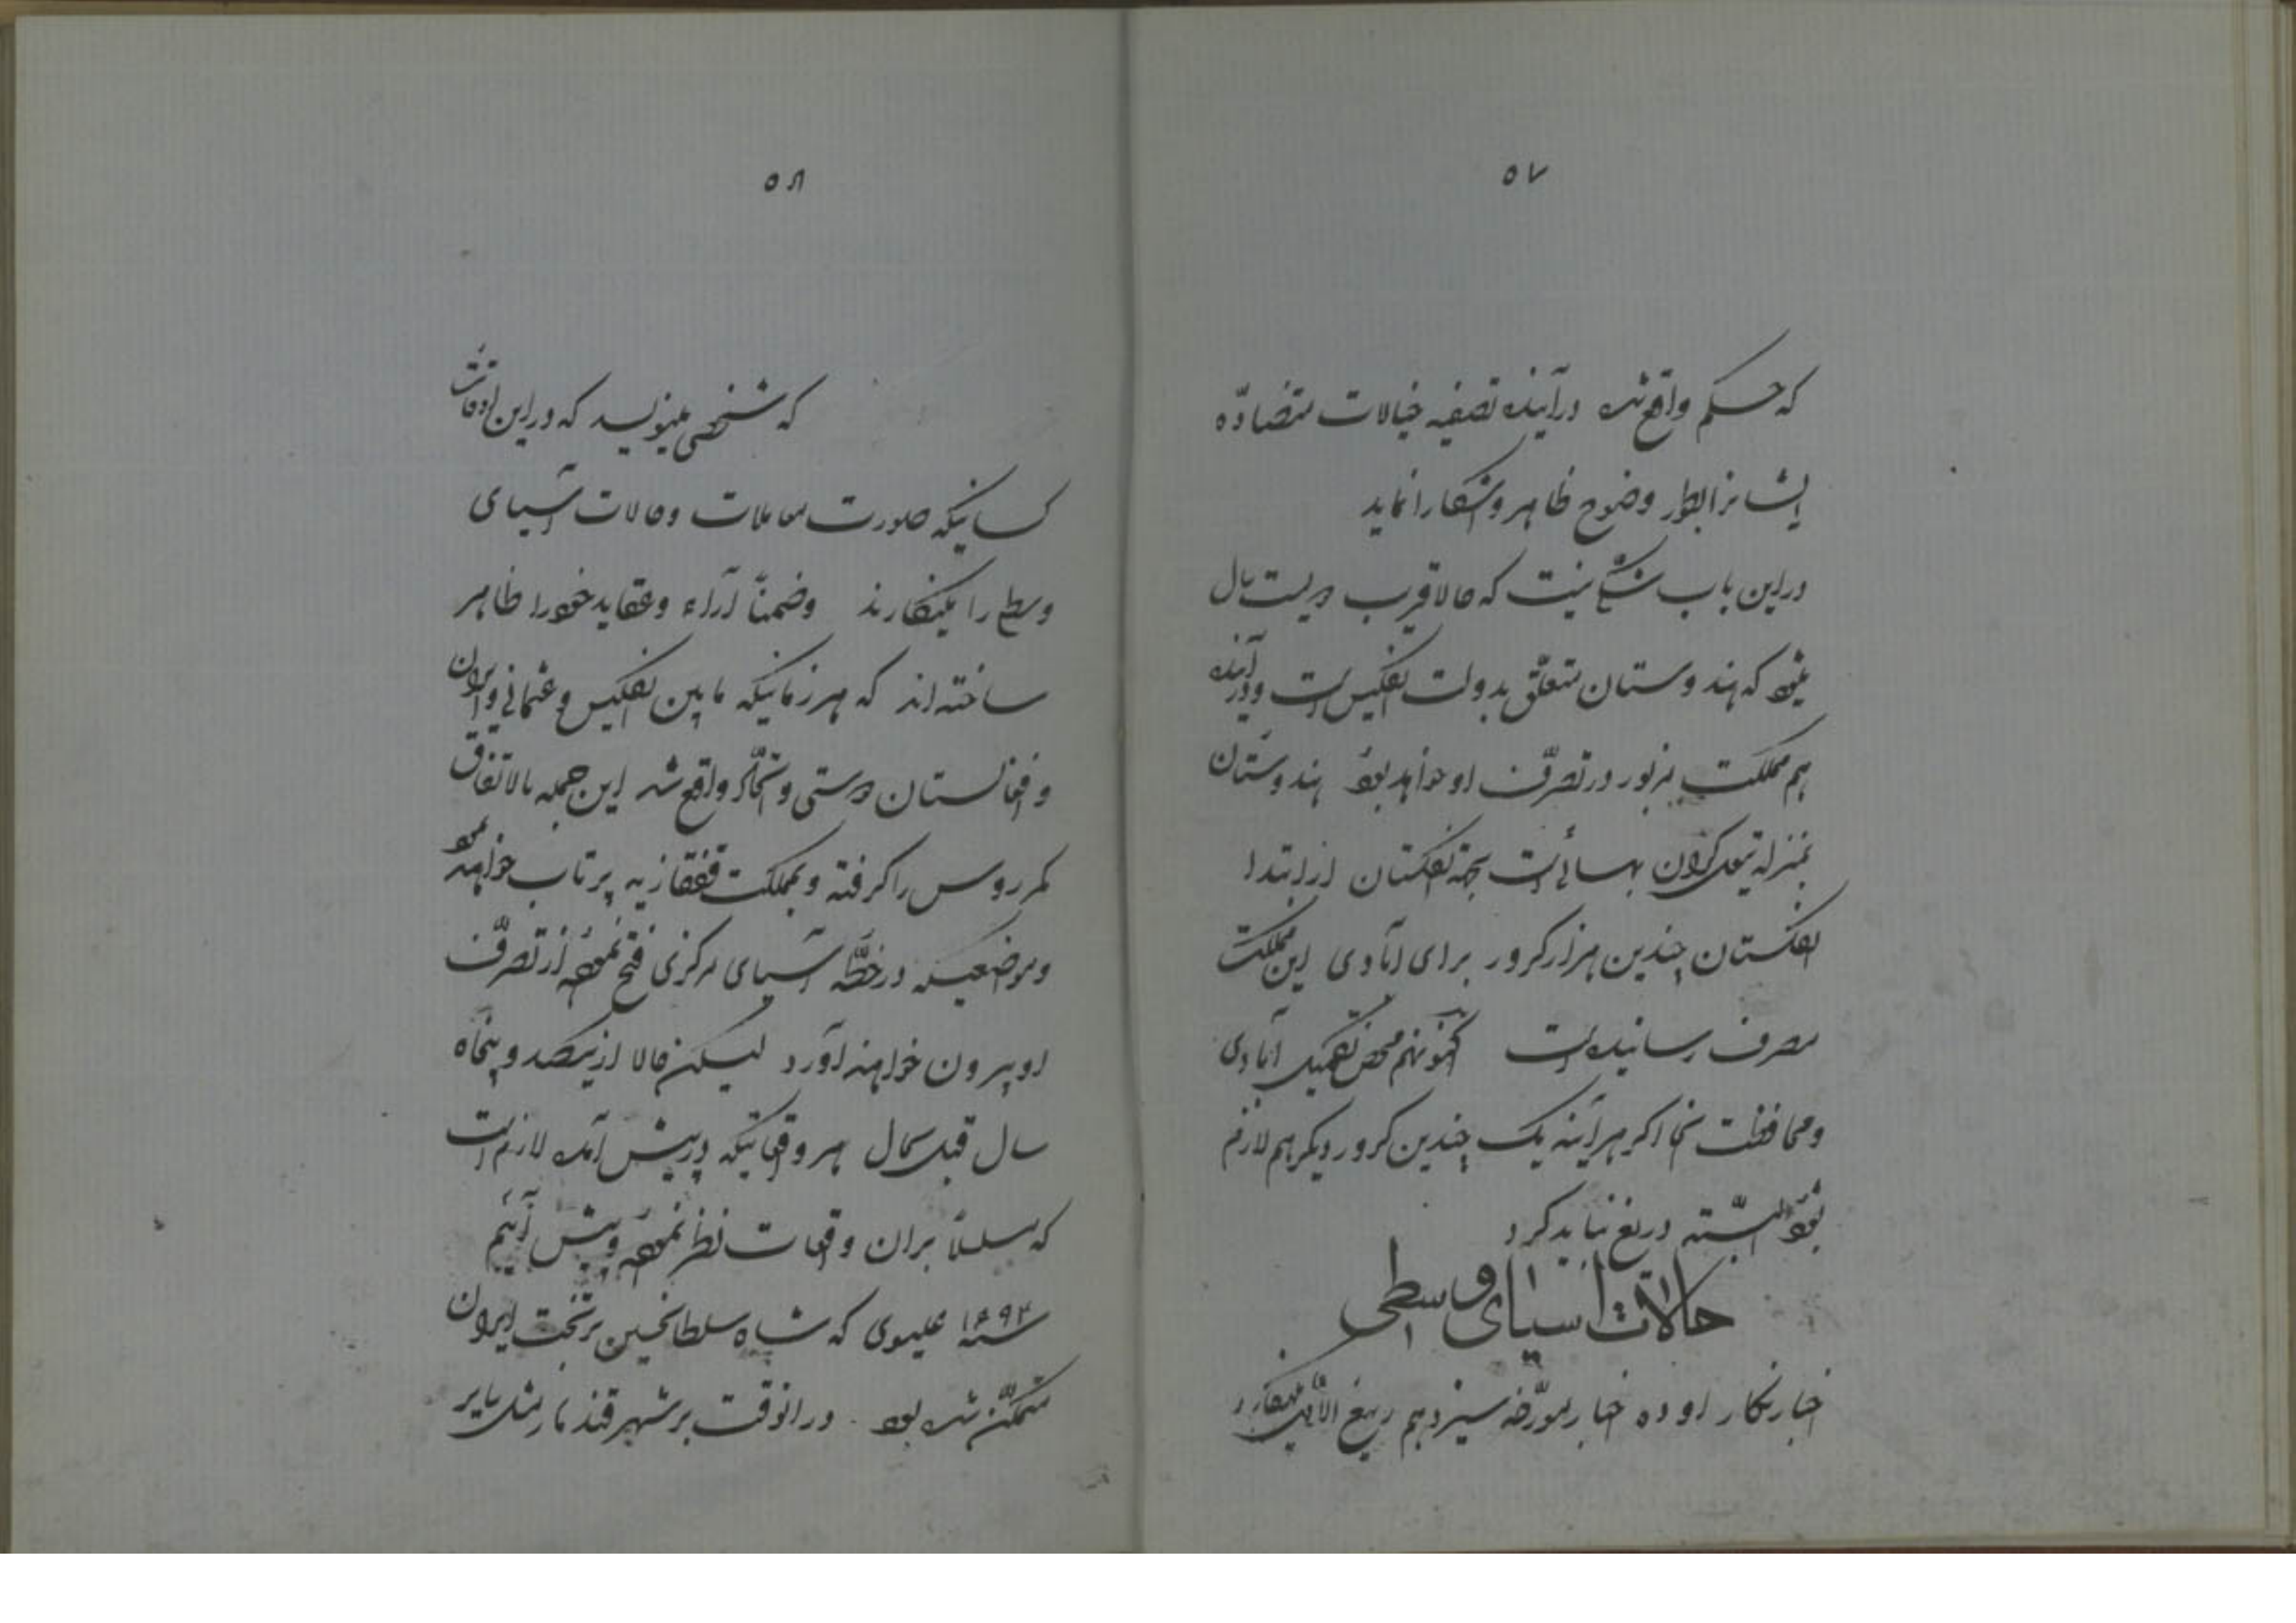 ۵۷
که حکم واقع شده در آینده تصفیه خیالات متضادّه
ایشانرا بطور وضوح ظاهر و آشکارا نماید
در این باب شکی نیست که حالا قریب دویست سال
میشود که هندوستان متعلّق بدولت انگلیس است و در آینده
هم مملکت مزبور در تصرّف او خواهد بود هندوستان
بمنزله است بجهة انگلستان از ابتدا
انگلستان چندین هزار کرور برای آبادی این مملکت
مصرف رسانیده است اکنون هم محض آبادی
و محافظت آنجا اگر هر آینه یک چندین کرور دیگر هم لازم
شود البتّه دریغ نباید کرد
حالات آسیای وسطی
اخبار نگار اوده اخبار مورّخه سیزدهم ربیع الثانی مینگارد
۵۸
که شخصی مینویسد که در این اوقات
کسانیکه صورت معاملات و حالات آسیای
وسطی را مینگارند و ضمناً آراء و عقاید خود را ظاهر
ساخته اند که هر زمانیکه مابین انگلیس و عثمانی و ایران
و افغانستان دوستی و اتّحاد واقع شد این جمله بالاتفاق
کمر روس را گرفته و بمملکت قفقازیه پرتاب خواهند نمود
و مواضعیکه در خطّه آسیای مرکزی فتح نموده از تصرّف
او بیرون خواهند آورد لیکن حالا از یکصد و پنجاه
سال قبل هر وقعاتیکه در پیش آمده لازم است
که مسلسلاً بران وقعات نظر نموده و پیش آئیم
سنه ۱۶۹۴ عیسوی که شاه سلطانحسین بر تخت ایران
متمکّن شده بود در انوقت بر شهر قندهار مثل بابر